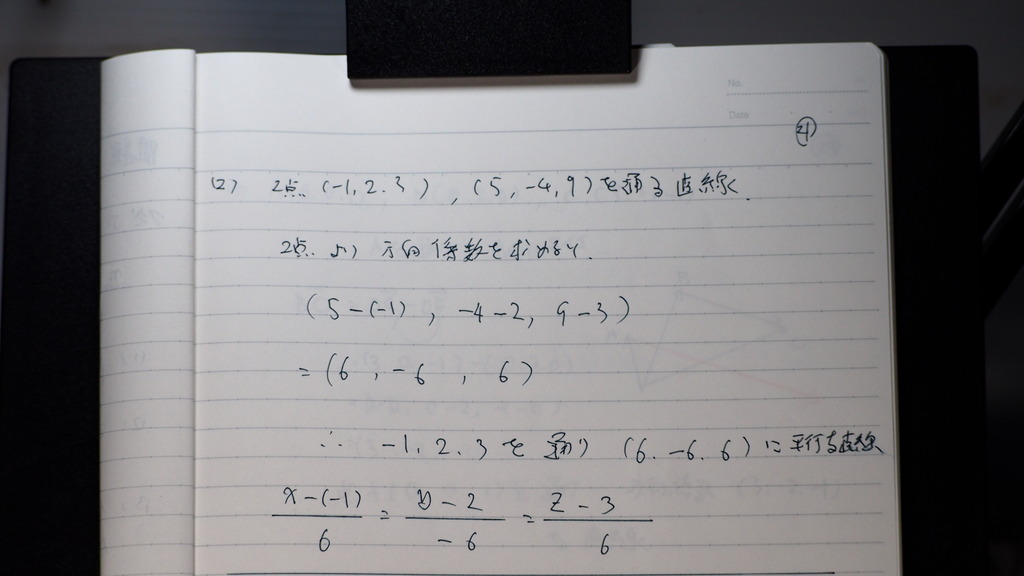 No.
Date
(2) 2点 (-1, 2. 3) , (5, -4, 9) を通る直線.
2点より 方向係数を求めると.
(5-(-1) , -4-2, 9-3)
= (6 , -6 , 6)
∴ -1, 2, 3 を 通り (6. -6. 6) に平行な直線
x-(-1)/6 = y-2/-6 = z-3/6